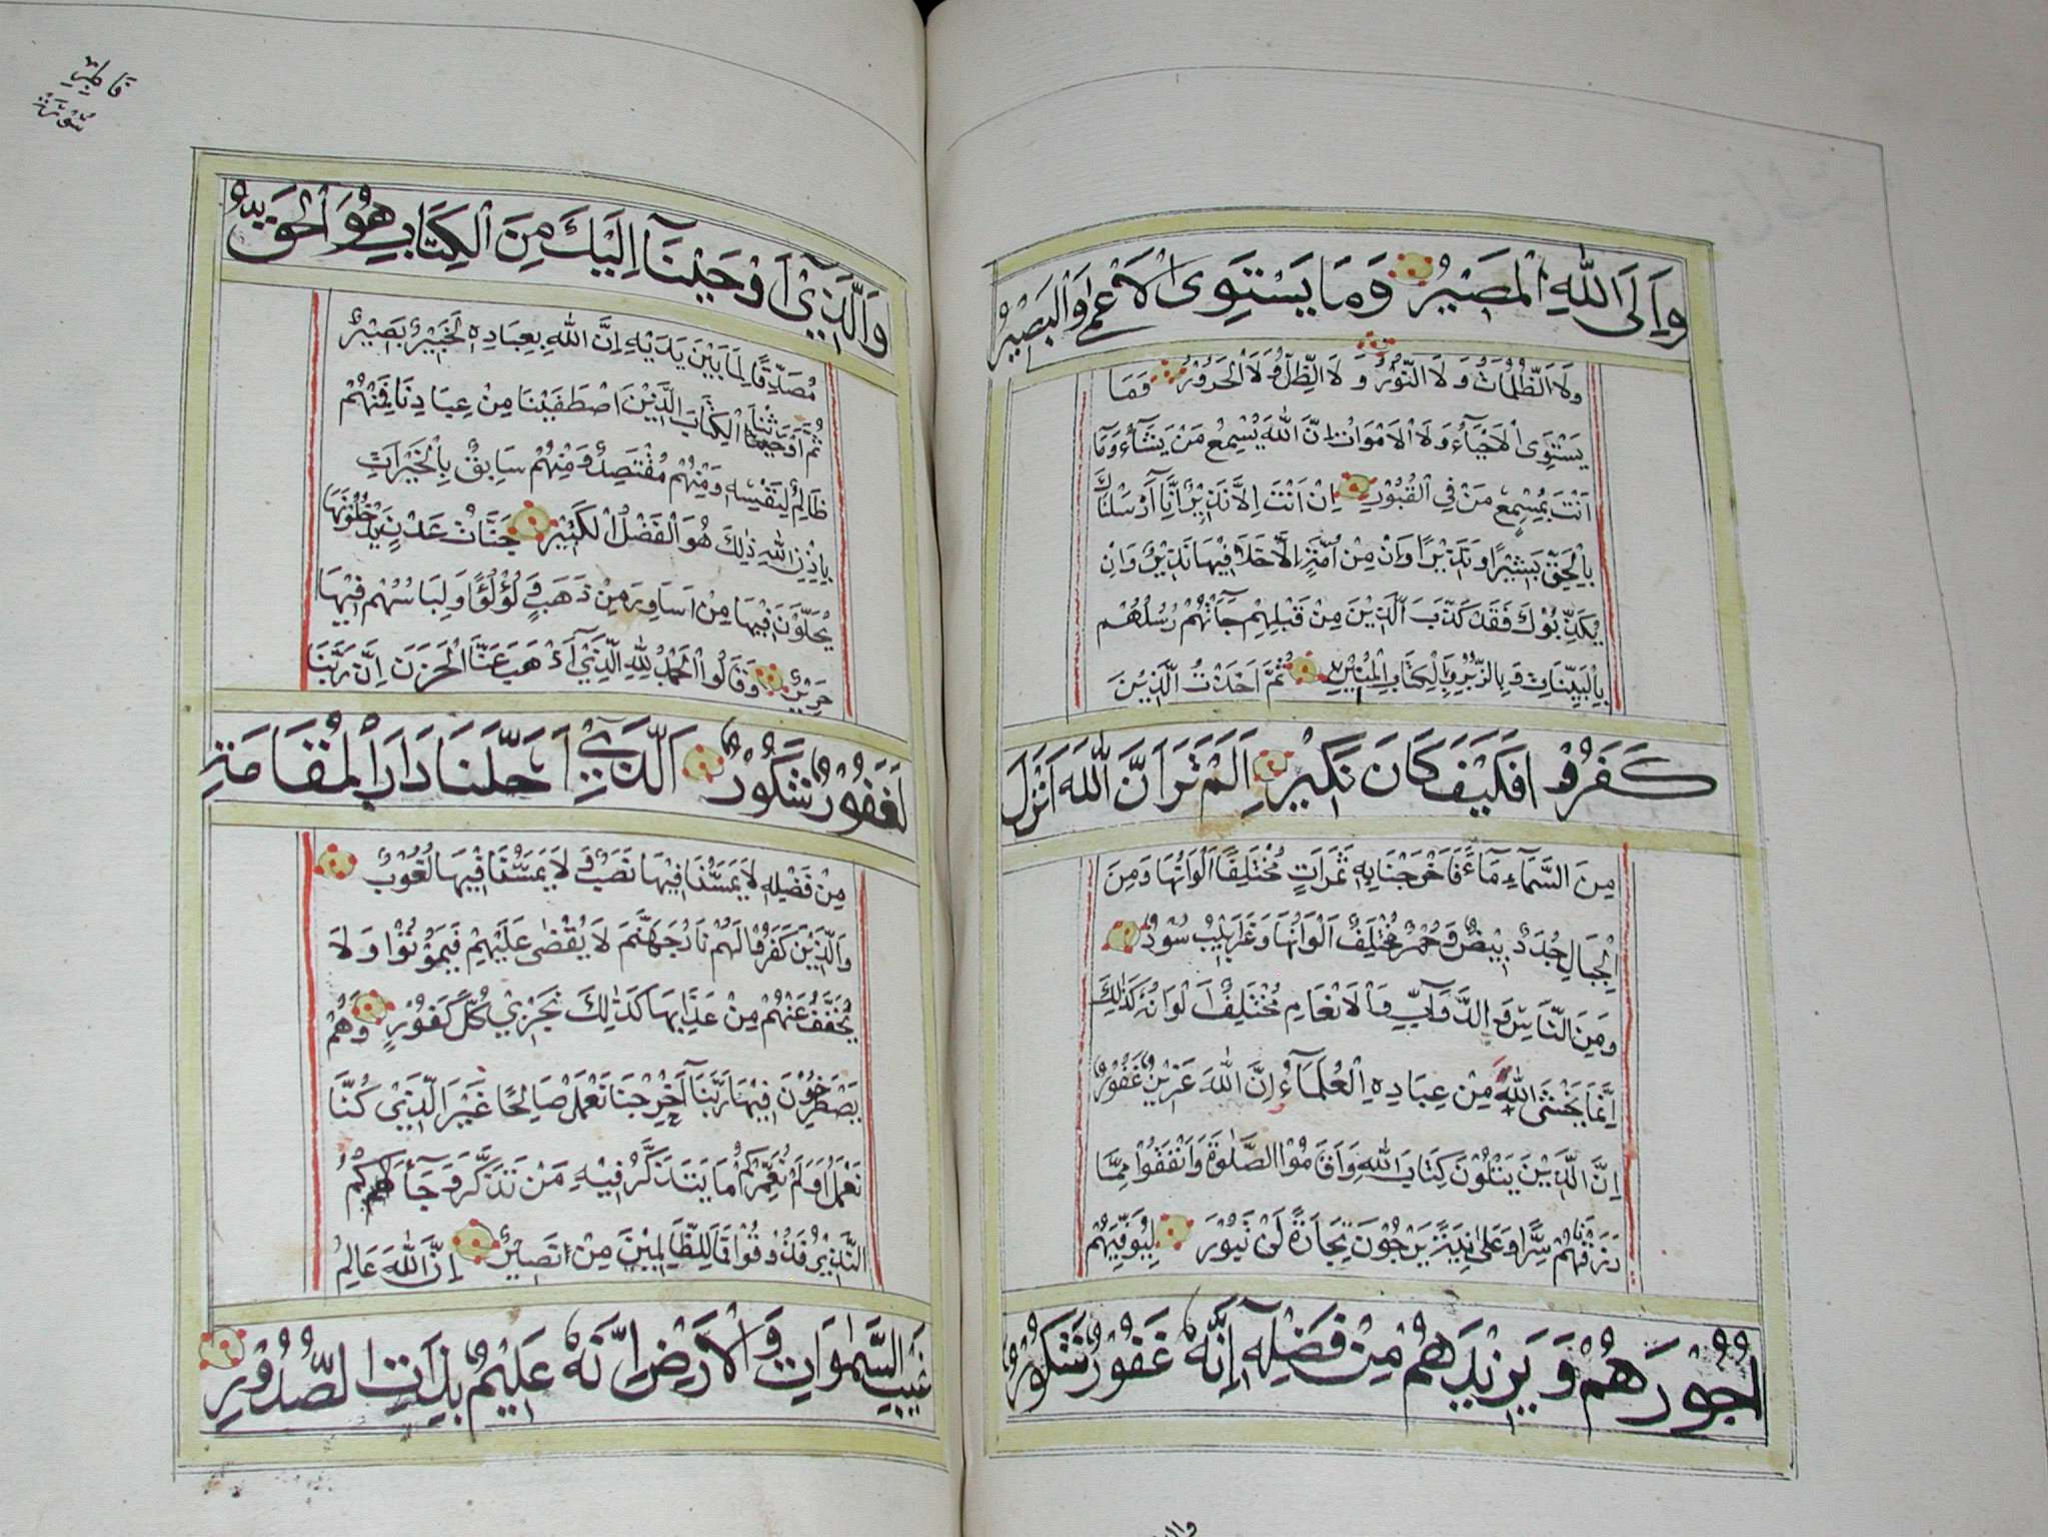 وَاِلَى اللّٰهِ الْمَصِيْرُ وَمَا يَسْتَوِى الْاَعْمٰى وَالْبَصِيْرُ
وَلَا الظُّلُمَاتُ وَلَا النُّوْرُ وَلَا الظِّلُّ وَلَا الْحَرُوْرُ وَمَا
يَسْتَوِى الْاَحْيَآءُ وَلَا الْاَمْوَاتُ اِنَّ اللّٰهَ يُسْمِعُ مَنْ يَشَآءُ وَمَآ
اَنْتَ بِمُسْمِعٍ مَنْ فِي الْقُبُوْرِ اِنْ اَنْتَ اِلَّا نَذِيْرٌ اِنَّآ اَرْسَلْنَاكَ
بِالْحَقِّ بَشِيْرًا وَنَذِيْرًا وَاِنْ مِنْ اُمَّةٍ اِلَّا خَلَا فِيْهَا نَذِيْرٌ وَاِنْ
يُكَذِّبُوْكَ فَقَدْ كَذَّبَ الَّذِيْنَ مِنْ قَبْلِهِمْ جَآءَتْهُمْ رُسُلُهُمْ
بِالْبَيِّنَاتِ وَبِالزُّبُرِ وَبِالْكِتَابِ الْمُنِيْرِ ثُمَّ اَخَذْتُ الَّذِيْنَ
كَفَرُوْا فَكَيْفَ كَانَ نَكِيْرِ اَلَمْ تَرَ اَنَّ اللّٰهَ اَنْزَلَ
مِنَ السَّمَآءِ مَآءً فَاَخْرَجْنَا بِهٖ ثَمَرَاتٍ مُخْتَلِفًا اَلْوَانُهَا وَمِنَ
الْجِبَالِ جُدَدٌ بِيْضٌ وَحُمْرٌ مُخْتَلِفٌ اَلْوَانُهَا وَغَرَابِيْبُ سُوْدٌ
وَمِنَ النَّاسِ وَالدَّوَآبِّ وَالْاَنْعَامِ مُخْتَلِفٌ اَلْوَانُهٗ كَذٰلِكَ
اِنَّمَا يَخْشَى اللّٰهَ مِنْ عِبَادِهِ الْعُلَمَآءُ اِنَّ اللّٰهَ عَزِيْزٌ غَفُوْرٌ
اِنَّ الَّذِيْنَ يَتْلُوْنَ كِتَابَ اللّٰهِ وَاَقَامُوا الصَّلٰوةَ وَاَنْفَقُوْا مِمَّا
رَزَقْنَاهُمْ سِرًّا وَعَلَانِيَةً يَرْجُوْنَ تِجَارَةً لَنْ تَبُوْرَ لِيُوَفِّيَهُمْ
اُجُوْرَهُمْ وَيَزِيْدَهُمْ مِنْ فَضْلِهٖ اِنَّهٗ غَفُوْرٌ شَكُوْرٌ
سُوْرَةُ
فَاطِرِ
وَالَّذِيْٓ اَوْحَيْنَآ اِلَيْكَ مِنَ الْكِتَابِ هُوَ الْحَقُّ
مُصَدِّقًا لِمَا بَيْنَ يَدَيْهِ اِنَّ اللّٰهَ بِعِبَادِهٖ لَخَبِيْرٌ بَصِيْرٌ
ثُمَّ اَوْرَثْنَا الْكِتَابَ الَّذِيْنَ اصْطَفَيْنَا مِنْ عِبَادِنَا فَمِنْهُمْ
ظَالِمٌ لِنَفْسِهٖ وَمِنْهُمْ مُقْتَصِدٌ وَمِنْهُمْ سَابِقٌ بِالْخَيْرَاتِ
بِاِذْنِ اللّٰهِ ذٰلِكَ هُوَ الْفَضْلُ الْكَبِيْرُ جَنَّاتُ عَدْنٍ يَدْخُلُوْنَهَا
يُحَلَّوْنَ فِيْهَا مِنْ اَسَاوِرَ مِنْ ذَهَبٍ وَلُؤْلُؤًا وَلِبَاسُهُمْ فِيْهَا
حَرِيْرٌ وَقَالُوا الْحَمْدُ لِلّٰهِ الَّذِيْٓ اَذْهَبَ عَنَّا الْحَزَنَ اِنَّ رَبَّنَا
لَغَفُوْرٌ شَكُوْرٌ اَلَّذِيْٓ اَحَلَّنَا دَارَ الْمُقَامَةِ
مِنْ فَضْلِهٖ لَا يَمَسُّنَا فِيْهَا نَصَبٌ وَلَا يَمَسُّنَا فِيْهَا لُغُوْبٌ
وَالَّذِيْنَ كَفَرُوْا لَهُمْ نَارُ جَهَنَّمَ لَا يُقْضٰى عَلَيْهِمْ فَيَمُوْتُوْا وَلَا
يُخَفَّفُ عَنْهُمْ مِنْ عَذَابِهَا كَذٰلِكَ نَجْزِيْ كُلَّ كَفُوْرٍ وَهُمْ
يَصْطَرِخُوْنَ فِيْهَا رَبَّنَآ اَخْرِجْنَا نَعْمَلْ صَالِحًا غَيْرَ الَّذِيْ كُنَّا
نَعْمَلُ اَوَلَمْ نُعَمِّرْكُمْ مَا يَتَذَكَّرُ فِيْهِ مَنْ تَذَكَّرَ وَجَآءَكُمُ
النَّذِيْرُ فَذُوْقُوْا فَمَا لِلظَّالِمِيْنَ مِنْ نَصِيْرٍ اِنَّ اللّٰهَ عَالِمُ
غَيْبِ السَّمٰوَاتِ وَالْاَرْضِ اِنَّهٗ عَلِيْمٌ بِذَاتِ الصُّدُوْرِ